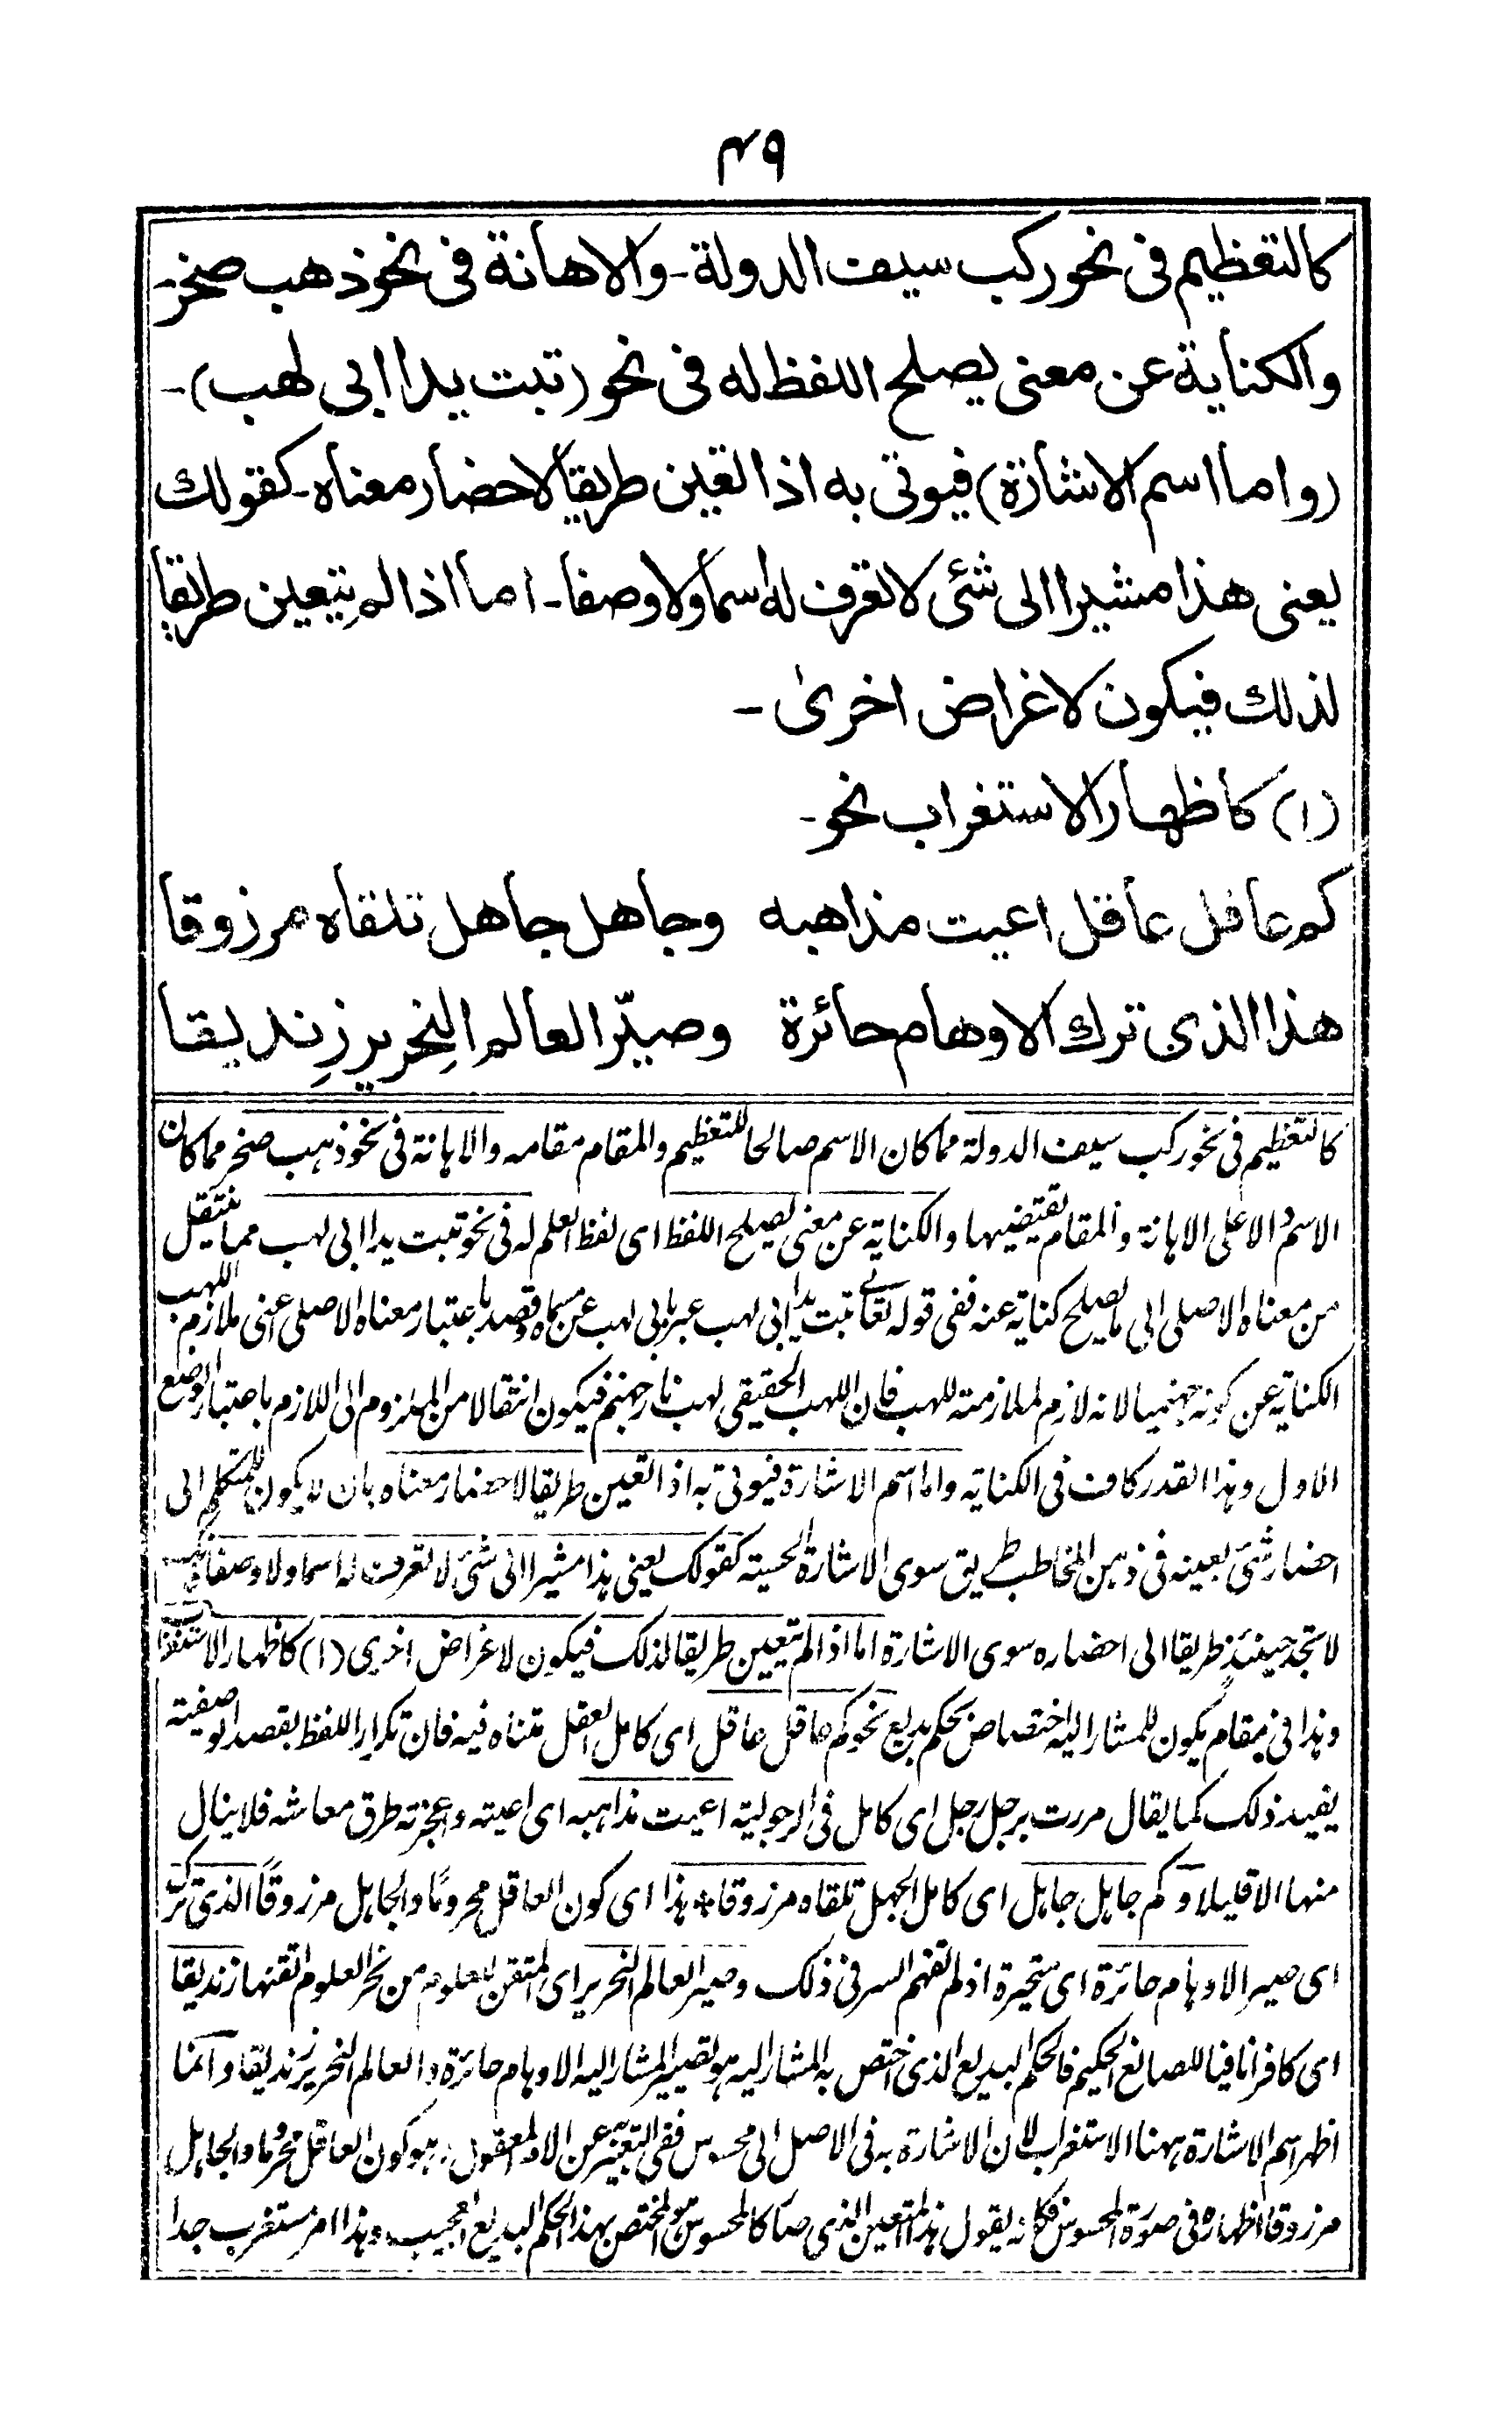 ۴۹
كالتعظيم فى نحو ركب سيف الدولة - والاهانة فى نحو ذهب صخر -
والكناية عن معنى يصلح اللفظ له فى نحو (تبت يدا ابى لهب) -
(واما اسم الاشارة) فيوتى به اذا تعين طريقا لاحضار معناه - كقولك
بعنى هذا مشيرا الى شئ لا تعرف له اسما ولا وصفا - اما اذا لم يتعين طريقا
لذلك فيكون لاغراض اخرىٰ -
(۱) كاظهار الاستغراب نحو -
كم عاقل عاقل اعيت مذاهبه وجاهل جاهل تلقاه مرزوقا
هذا الذى ترك الاوهام حائرة وصيّر العالم النِحرير زِنديقا
كالتعظيم فى نحو ركب سيف الدولة مما كان الاسم صالحا للتعظيم والمقام مقامه والاهانة فى نحو ذهب صخر مما كان
الاسم دالا على الاهانة والمقام يقتضيها والكناية عن معنى يصلح اللفظ اى لفظ العلم له فى نحو تبت يدا ابى لهب مما ينتقل
من معناه الاصلى الى ما يصلح كناية عنه ففى قوله تعالے تبت يدا ابى لهب عبر بابى لهب عن مسماه وقصد باعتبار معناه الاصلى اعنى ملازم اللهب
الكناية عن كونه جهنميا لانه لازم لملازمته للهب فان اللهب الحقيقى لهب نار جهنم فيكون انتقالا من الملزوم الى اللازم باعتبار الوضع
الاول وهذا القدر كاف فى الكناية واما اسم الاشارة فيوتى به اذا تعين طريقا لاحضار معناه بان لا يكون للمتكلم الى
احضار شئ بعينه فى ذهن المخاطب طريق سوى الاشارة الحسية كقولك بعنى هذا مشيرا الى شئ لا تعرف له اسما ولا وصفا
لا تجد حينئذ طريقا الى احضاره سوى الاشارة اما اذا لم يتعين طريقا لذلك فيكون لاغراض اخرى (۱) كاظهار الاستغراب
وهذا فى مقام يكون للمشار اليه اختصاص بحكم بديع نحو كم عاقل عاقل اى كامل العقل متناه فيه فان تكرار اللفظ بقصد الوصفية
يفيد ذلك كما يقال مررت برجل رجل اى كامل فى الرجولية اعيت مذاهبه اى اعيته واعجزته طرق معاشه فلا ينال
منها الا قليلا وكم جاهل جاهل اى كامل الجهل تلقاه مرزوقا * هذا اى كون العاقل محروما والجاهل مرزوقاً الذى ترك
اى صير الاوهام حائرة اى متحيرة اذ لم تفهم السر فى ذلك وصير العالم النحرير اى المتقن للعلوم من نحر العلوم اتقنها زنديقا
اى كافرا نافيا للصانع الحكيم فالحكم البديع الذى اختص به المشار اليه هو تصيير المشار اليه الاوهام حائرة والعالم النحرير زنديقا وانما
اظهر اسم الاشارة ههنا الاستغراب لان الاشارة به فى الاصل الى محسوس ففى التعبير عن الامر المعقول وهو كون العاقل محروما والجاهل
مرزوقا اظهاره فى صورة المحسوس فكانه يقول هذا المتعين الذى صار كالمحسوس هو المختص بهذا الحكم البديع العجيب وهذا امر مستغرب جدا